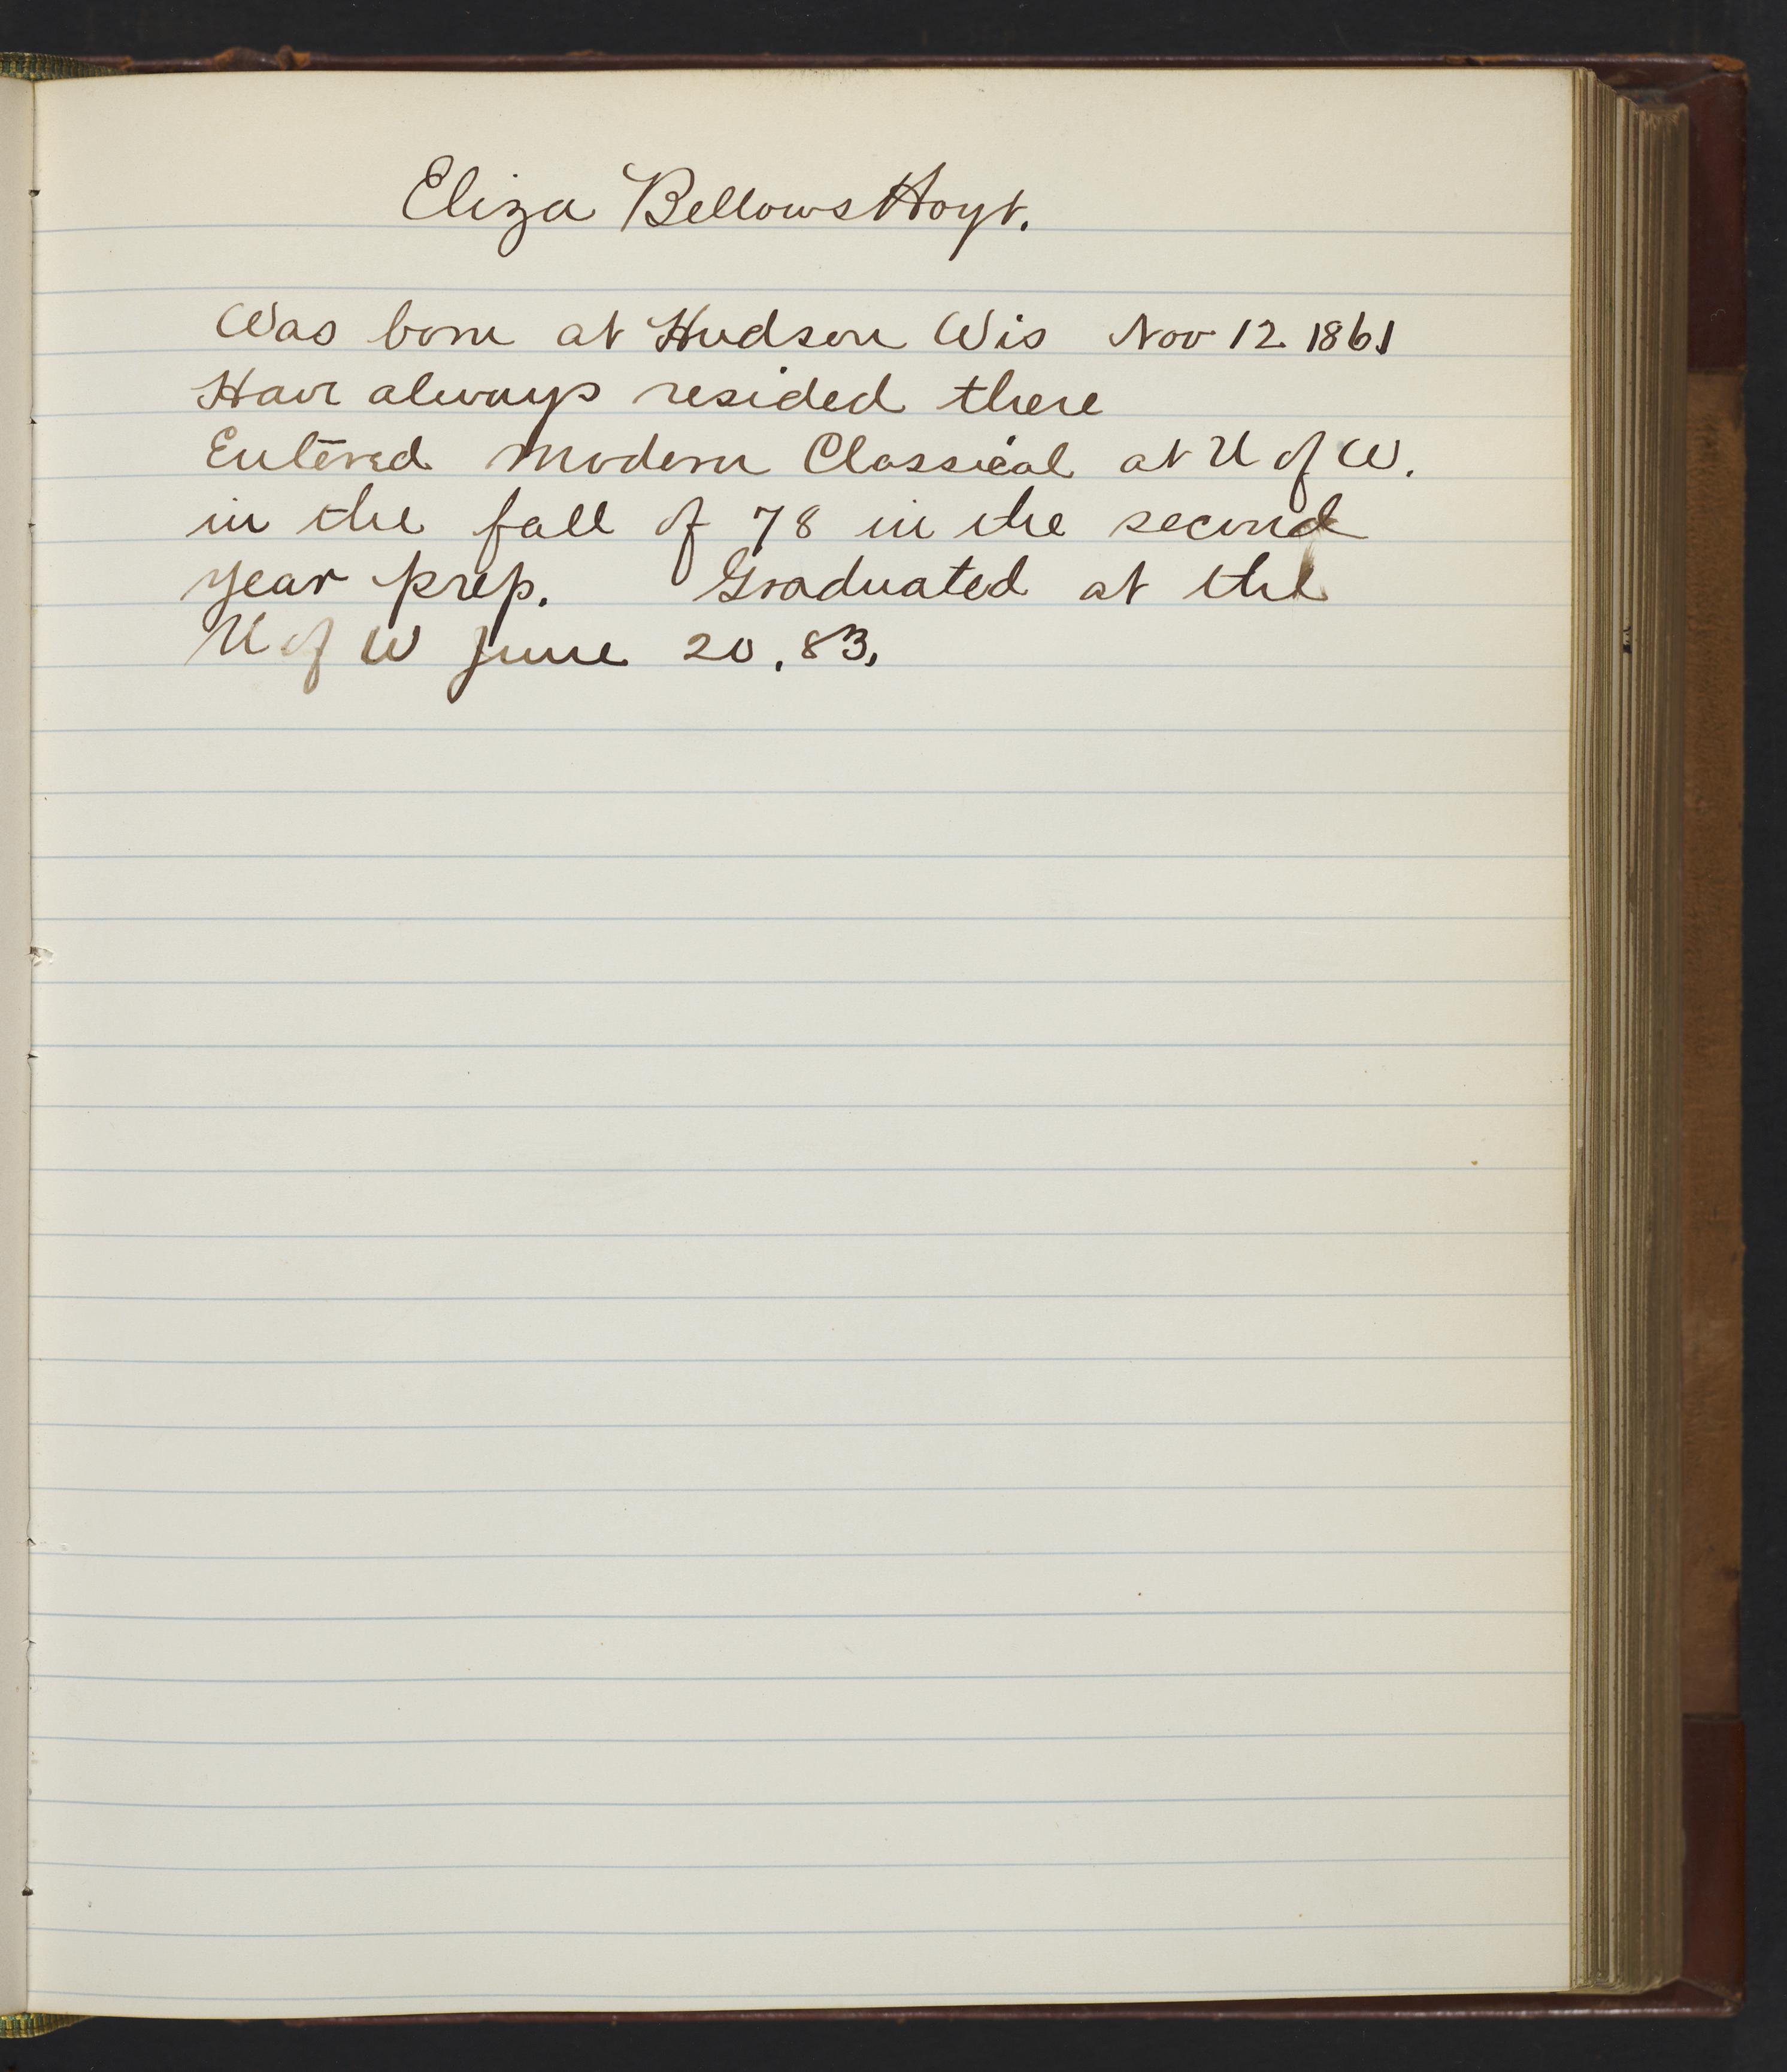 Eliza Bellows Hoyt.
Was born at Hudson Wis Nov 12 1861
Have always resided there
Entered Modern Classical at U of W.
in the fall of 78 in the second
year prep. Graduated at the
U of W June 20, 83,